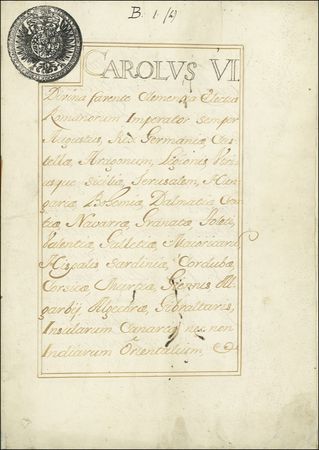 B. 1 (4)
CAROLVS VI.
Divina favente Clementia Electus
Romanorum Imperator semper
Augustus, Rex Germaniæ, Cas-
tellæ, Aragonum, Legionis, Utri-
usque Siciliæ, Jerusalem, Hun-
gariæ Bohemiæ, Dalmatiæ Croa-
tiæ, Navarræ, Granatæ, Toleti,
Valentiæ, Gallitiæ, Maioricarum
Hispalis Sardiniæ, Cordubæ,
Corsicæ Murtiæ, Giennis Al-
garbij, Algeciræ, Gibraltaris,
Insularum Canariæ nec non
Indiarum Orientalium, &